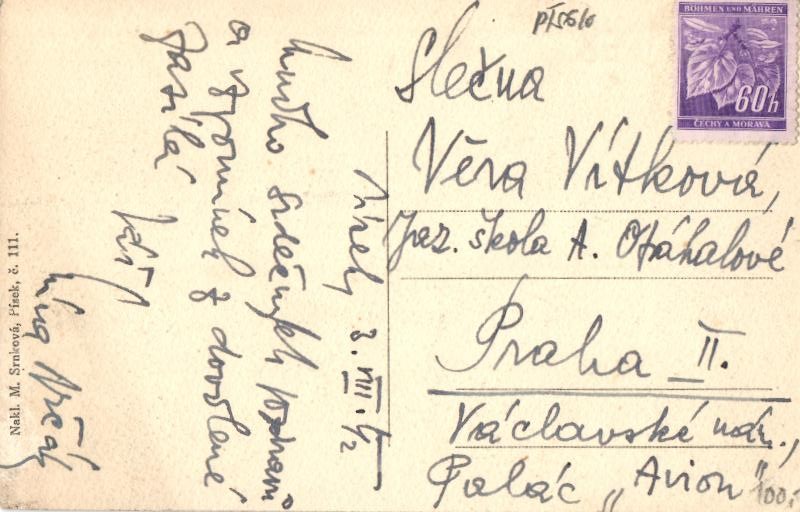 BÖHMEN UND MÄHREN
60h
ČECHY A MORAVA
Slečna
Věra Vítková,
Jaz. škola A. Otáhalové
Praha II.
Václavské nám.,
Palác „Avion"
100,-
3. VIII. 42
mnoho srdečných pozdravů
a vzpomínek z dovolené
zasílá
Váš
Nakl. M. Srnková, Písek, č. 111.